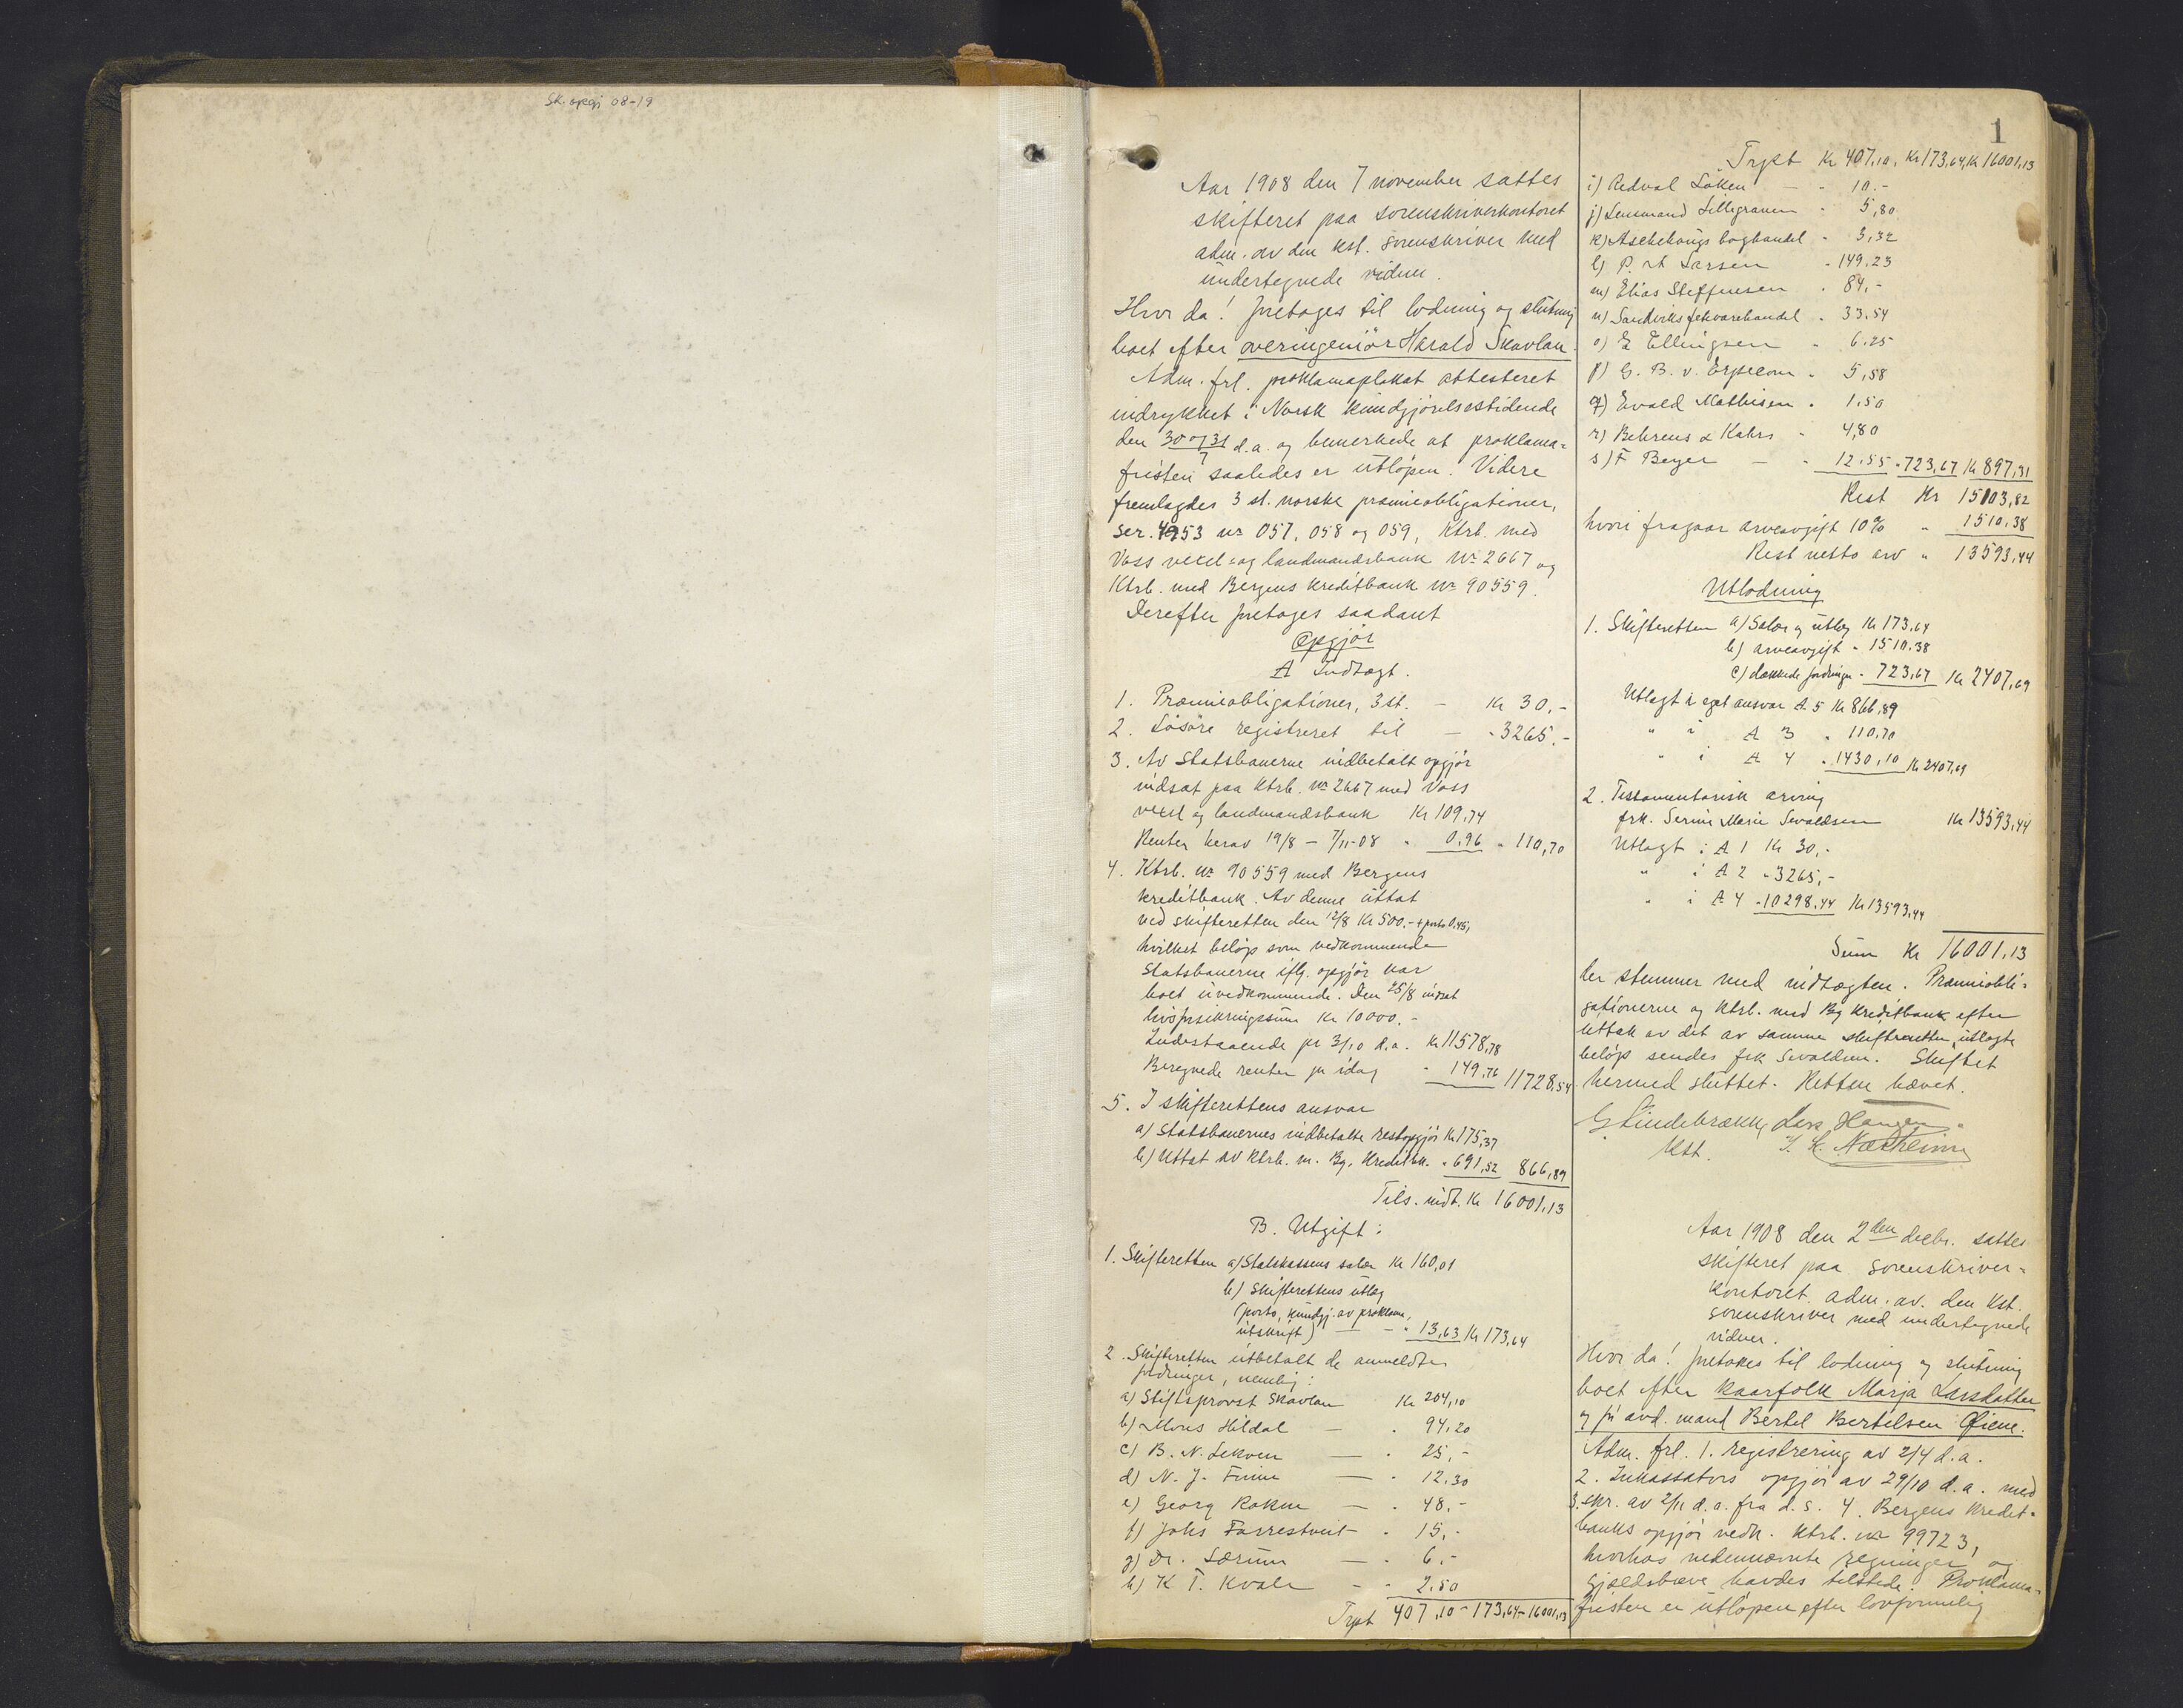 Sk. opgj 08-19
1
Aar 1908 den 7 november sattes
skifteret paa sorenskriverkontoret
adm. av den kst. sorenskriver med
undertegnede vidner.
Hvor da! foretages til lodning og slutning
boet efter overingeniör Harald Skavlan.
Adm. frl. proklamaplakat attesteret
indrykket i Norsk kundgjörelsestidende
den 30 og 31/7 d.a. og bemerkede at proklama-
fristen saaledes er utlöpen. Videre
fremlagdes 3 st. norske præmieobligationer,
ser. 4953 nr 057, 058 og 059, Ktrb. med
Voss vexel- og landmandsbank nr 2667 og
Ktrb. med Bergens kreditbank nr 90559.
Derefter foretages saadant
Opgjör
A Indtægt.
1. Præmieobligationer, 3 st. — Kr 30,-
2. Lösöre registreret til — - 3265.-
3. Av Statsbanerne indbetalt opgjör
indsat paa Ktrb. nr 2667 med Voss
vexel og landmandsbank Kr 109,74
Renter herav 19/8 - 7/11-08 " 0,96 " 110,70
4. Ktrb. nr 90559 med Bergens
kreditbank. Av denne uttat
ved skifteretten den 12/8 Kr 500.- + porto 0.45,
hvilket belöp som vedkommende
Statsbanerne iflg. opgjör var
boet uvedkommende. Den 25/8 indsat
livsforsikringssum Kr 10000.-
Indestaaende pr 3/10 d.a. Kr 11578,78
Beregnede renter pr idag - 149.76 11728.54
5. I skifterettens ansvar
a) Statsbanernes indbetalte restopgjör Kr 175,37
b) Uttat av Ktrb. m. Bg. Kreditbk. - 691,52 866,89
Tils. indt. Kr 16001.13
B. Utgift:
1. Skifteretten a) Statskassens salær Kr 160,01
b) Skifterettens utlæg
(porto, kundgj. av proklama,
utskrift) — - 13,63 Kr 173,64
2. Skifteretten utbetalt de anmeldte
fordringer, nemlig:
a) Stiftsprovst Skavlan Kr 204,10
b) Mons Hildal — - 94.20
c) B. N. Lekven — - 25,-
d) N. J. Finne — - 12,30
e) Georg Rokne — - 48.-
f) Johs Farrestveit - 15.-
g) Dr. Lærum — - 6.-
h) K T. Kvale - - 2.50
Trpt 407,10 - 173,64 - 16001,13
Trpt Kr 407,10. Kr 173,64, Kr 16001,13
i) Redval Löken — - 10.-
j) Lensmand Lillegraven - 5,80
k) Aschehougs boghandel - 3,32
l) P. A Larsen - 149.23
m) Elias Steffensen - 84,-
n) Sandviks fetvarehandel - 33.54
o) E Ellingsen " 6.25
p) G. B. v. Erpecom - 5,58
q) Evald Mathisen - 1.50
r) Behrens & Kahrs - 4,80
s) F Beyer — - 12.55 - 723,67 Kr 897,31
Rest Kr 15103,82
hvori fragaar arveavgift 10% " 1510.38
Rest netto arv " 13593,44
Utlodning
1. Skifteretten a) Salær og utlæg Kr 173.64
b) arveavgift - 1510.38
c) dækkede fordringer - 723,67 Kr 2407,69
Utlagt i eget ansvar A 5 Kr 866,89
" i A 3 - 110,70
" i A 4 - 1430,10 Kr 2407,69
2. Testamentarisk arving
frk. Serine Marie Sevaldsen Kr 13593,44
Utlagt i A 1 Kr 30,-
" i A 2 - 3265,-
" i A 4 - 10298,44 Kr 13593,44
Sum Kr 16001,13
der stemmer med indtægten. Præmieobli-
gationerne og Ktrb. med Bg Kreditbank efter
uttak av det av samme skifteretten utlagte
belöp sendes frk Sevaldsen. Skiftet
hermed sluttet. Retten hævet.
G Lindebrække Lars Hansen
Kst. J. K. Næsheim
Aar 1908 den 2den decbr. sattes
skifteret paa sorenskriver-
kontoret adm. av. den Kst.
sorenskriver med undertegnede
vidner.
Hvor da! foretakes til lodning og slutning
boet efter kaarfolk Marja Larsdatter
og før avd. mand Bertel Bertelsen Øiene.
Adm. frl. 1. registrering av 2/4 d.a.
2. Inkassators opgjör av 29/10 d.a. med
3. skr. av 2/11 d.a. fra d.s. 4. Bergens Kredit-
banks opgjör vedk. Ktrb. nr 99723,
hvorhos nedennævnte regninger og
gjældsbreve havdes tilstede. Proklama-
fristen er utlöpen efter lovformelig